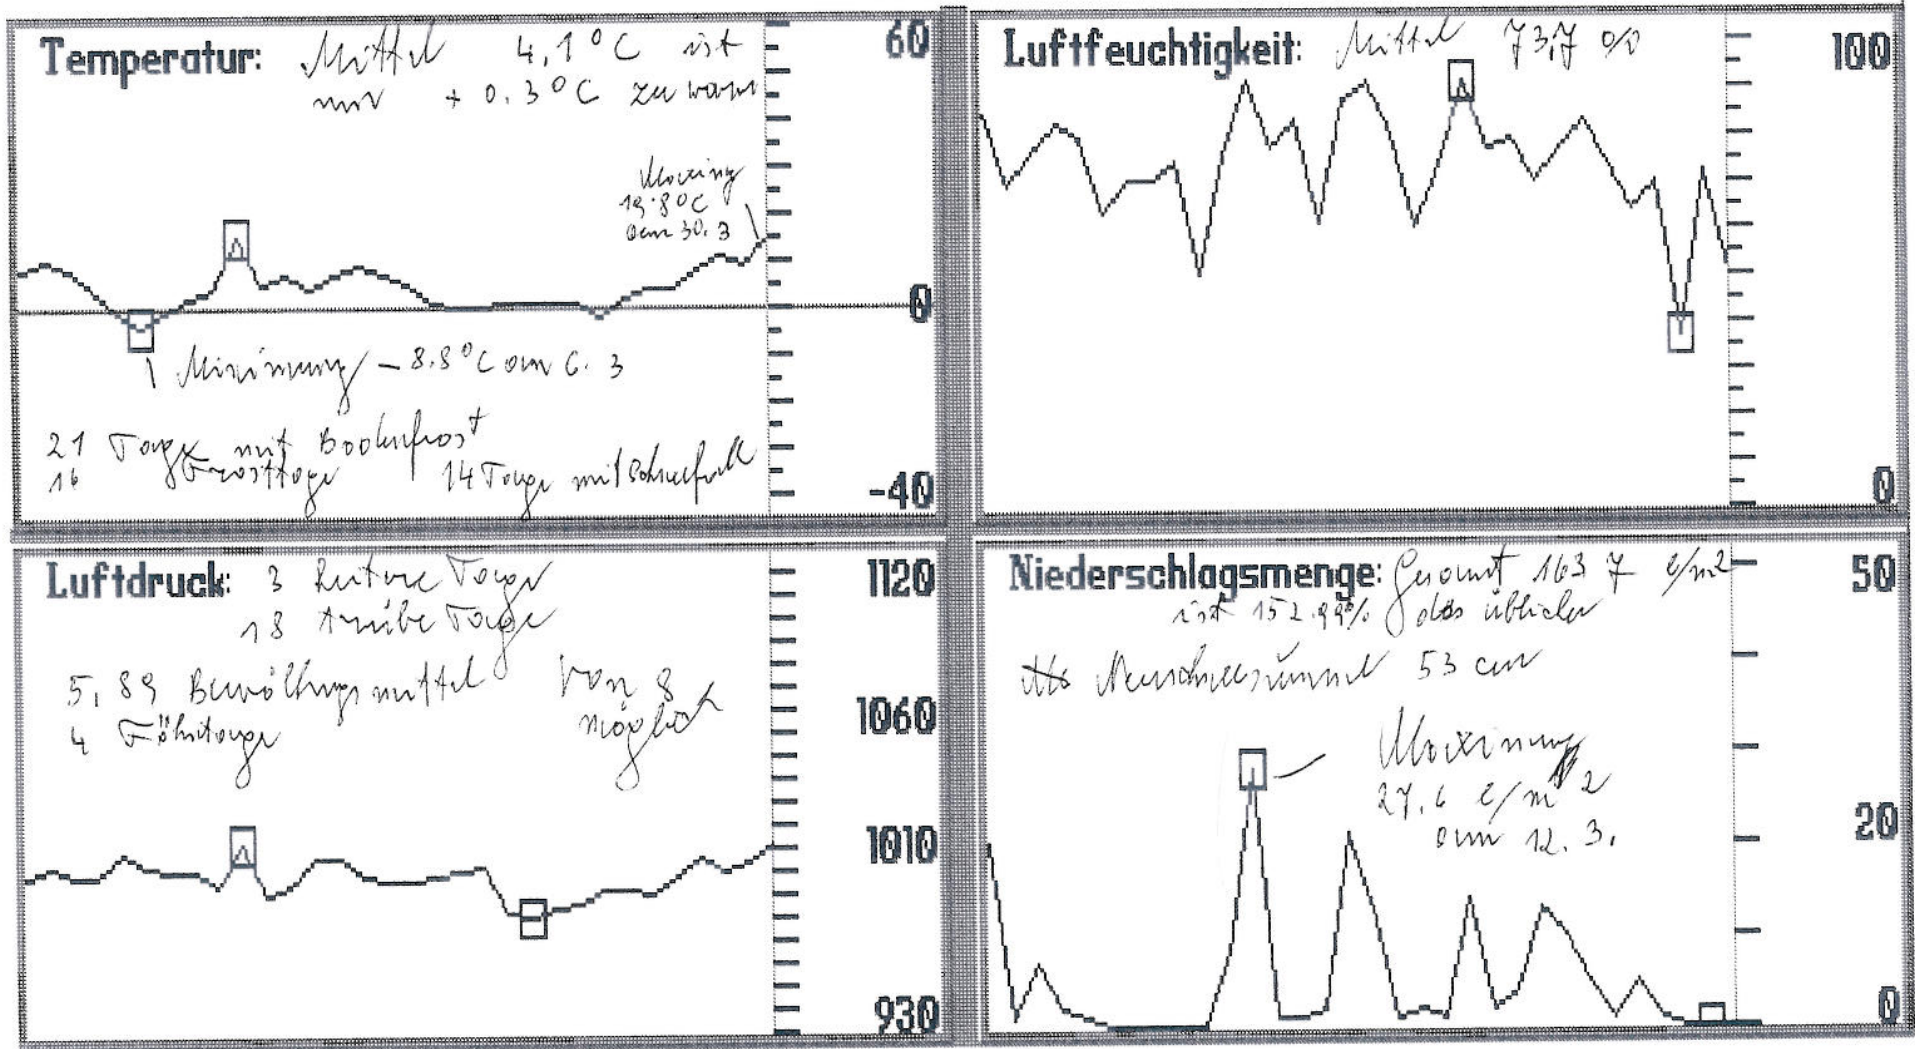 Temperatur: Mittel 4,1°C ist
nur + 0.3°C zu warm
60
Maximum
19.8°C
am 30.3
0
Minimum - 8.8°C am 6.3
21 Tage mit Bodenfrost
16 Frosttage 14 Tage mit Schneefall
-40
Luftfeuchtigkeit: Mittel 73,7 %
100
0
Luftdruck: 3 heitere Tage
18 trübe Tage
5,89 Bewölkungsmittel von 8
möglich
4 Föhntage
1120
1060
1010
930
Niederschlagsmenge: Gesamt 163 7 l/m2
ist 152.99% des üblichen
Neuschneesummel 53 cm
Maximum
27,6 l/m 2
am 12.3.
50
20
0